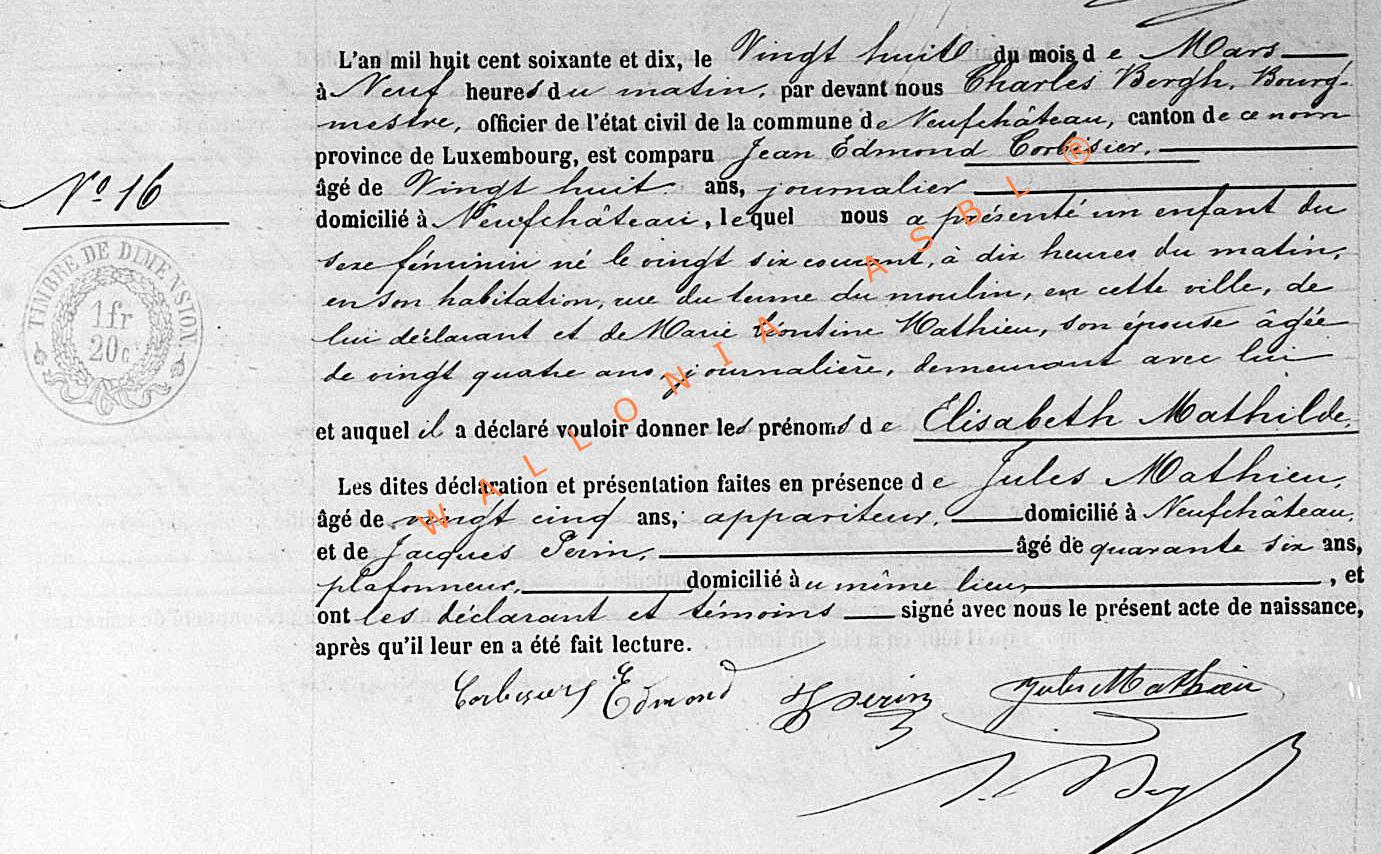 L'an mil huit cent soixante et dix, le Vingt huit du mois de Mars
à Neuf heures du matin, par devant nous Charles Bergh, Bourg-
mestre, officier de l'état civil de la commune de Neufchâteau, canton de ce nom
province de Luxembourg, est comparu Jean Edmond Corbisier,
N° 16
âgé de Vingt huit ans, journalier
domicilié à Neufchâteau, lequel nous a présenté un enfant du
sexe féminin né le vingt six courant, à dix heures du matin,
en son habitation, rue du terme du moulin, en cette ville, de
lui déclarant et de Marie Léontine Mathieu, son épouse âgée
de vingt quatre ans, journalière, demeurant avec lui
TIMBRE DE DIMENSION
1 fr
20 c
et auquel il a déclaré vouloir donner les prénoms de Elisabeth Mathilde.
Les dites déclaration et présentation faites en présence de Jules Mathieu,
âgé de vingt cinq ans, appariteur, domicilié à Neufchâteau,
et de Jacques Perin, âgé de quarante six ans,
plafonneur, domicilié au même lieu, et
ont les déclarant et témoins signé avec nous le présent acte de naissance,
après qu'il leur en a été fait lecture.
Corbisier Edmond J Perin Jules Mathieu
WALLONIA ASBL ®